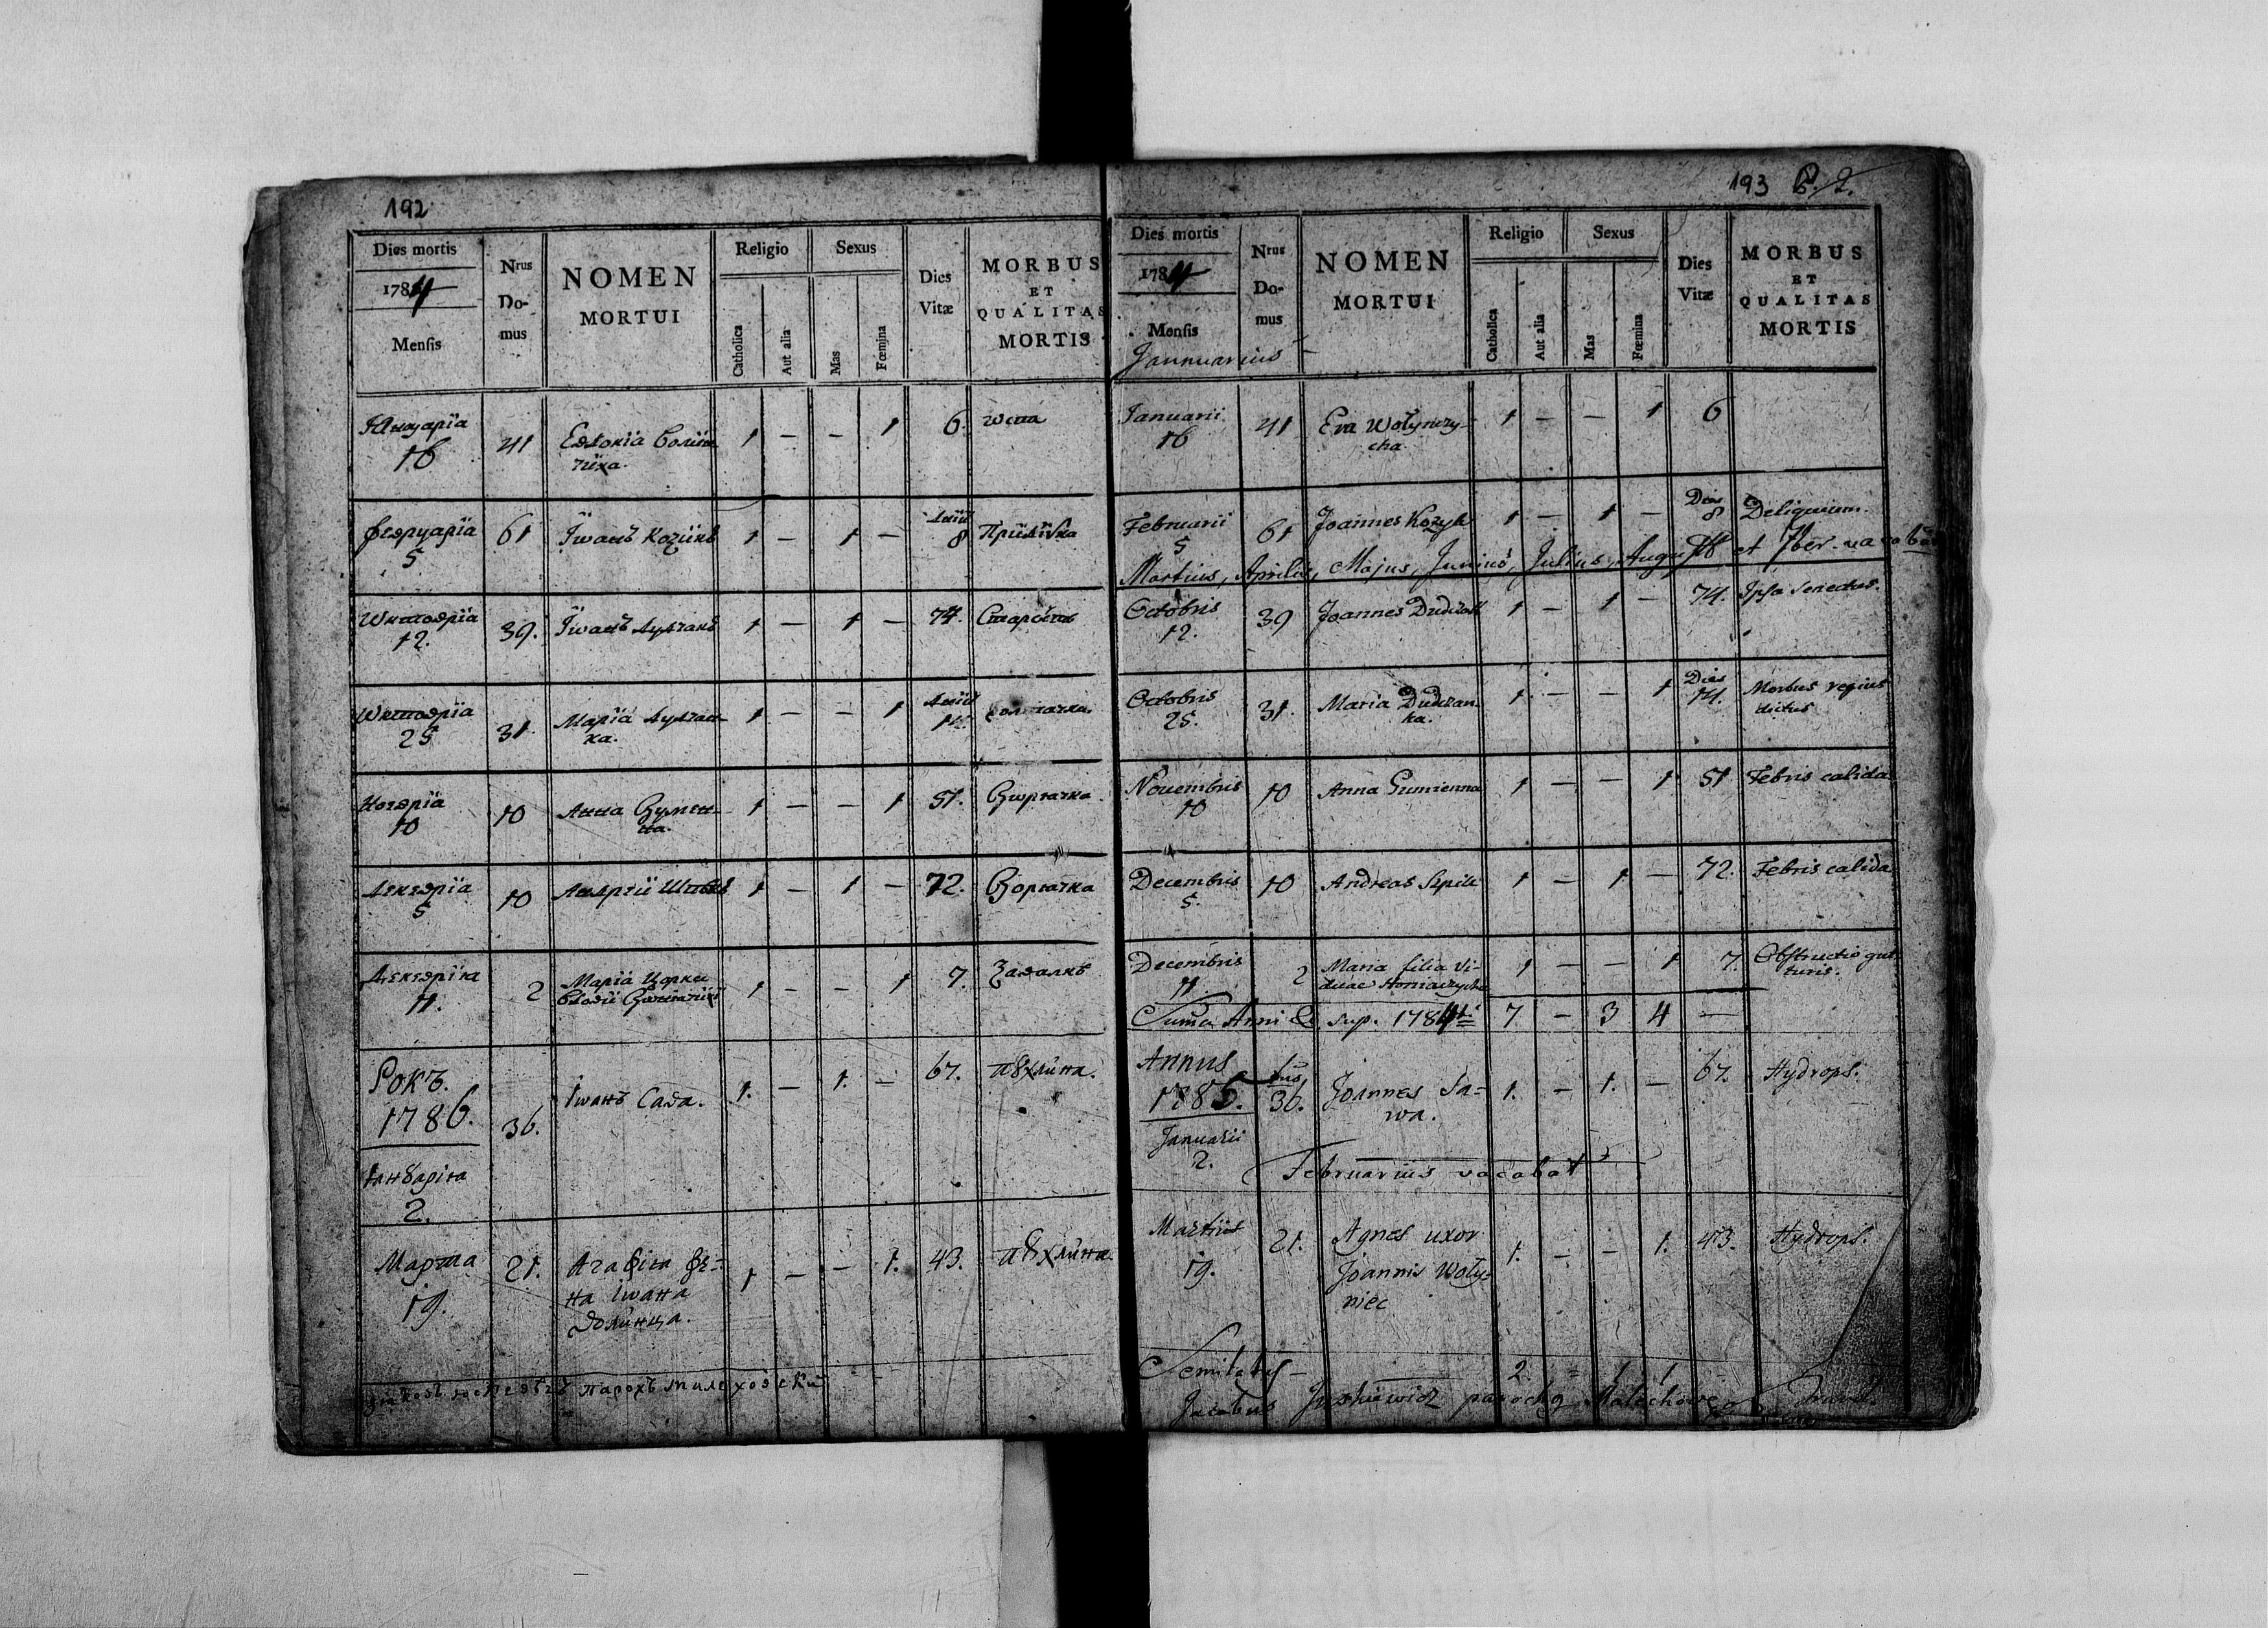 192
Dies mortis
1784
Mensis
Nrus Do- mus
NOMEN MORTUI
Religio
Catholica
Aut alia
Sexus
Mas
Fœmina
Dies Vitæ
MORBUS ET QUALITAS MORTIS
Януаріа 16 41 1 – – 1 6. wспа
Феврꙋаріа 5 61 Іwанъ Козикъ 1 – 1 – 8
Wктоврїа 12. 39. Іwанъ Дꙋдчакъ 1 – 1 – 74. Старость
Wктоврїа 25 31. Маріа Дꙋдчан- ка. 1 – – 1
Ноеврїа 10 10 Анна Гꙋмен- на. 1 – – 1 51. Гwрачка
Декеврїа 5 10 Андрей 1 – 1 – 72. Горачка
Декеврїа 11. 2 Маріа Цорка 1 – – 1 7. Завалкъ
Рокъ. 1786. 36. Іwанъ Сава. 1. – 1. – 67. пꙋхлина.
Іанꙋаріа 2.
Марта 19. 21. Агафіа же= на Іwана волинца. 1 – – 1. 43. пꙋхлина.
парохъ малеховскій
193
Dies mortis
1784
Mensis
Jannuarius
Nrus Do- mus
NOMEN MORTUI
Religio
Catholica
Aut alia
Sexus
Mas
Fœmina
Dies Vitæ
MORBUS ET QUALITAS MORTIS
Januarii 16 41 Eva Wołynczy- cha 1 – – 1 6
Februarii 5 61 Joannes Kozyk 1 – 1 – Dies 8 Deliquium.
Martius, Aprilis, Majus, Junius, Julius, August et 7ber
Octobris 12. 39 Joannes Dudczak 1 – 1 – 74. Ipsa Senectus.
Octobris 25. 31. Maria Dudczan- ka. 1 – – 1 Dies 14. Morbus regius dictus
Novembris 10 10 Anna Gumienna 1 – – 1 51 Febris calida
Decembris 5. 10 Andreas Szpik 1 – 1. – 72. Febris calida
Decembris 11 2 Maria filia Vi- duae 1 – – 1 7. Obstructio gut turis.
Suma Anni sup. 1784 7 – 3 4 –
Annus 1786. Januarii 2. 36. Joannes Sa= wa. 1. – 1. – 67. Hydrops.
Februarius vacabat
Martii 19. 21. Agnes uxor Joannis Woły= niec 1. – – 1. 43. Hydrops.
2. – 1 1
Jacobus parochq Malechove